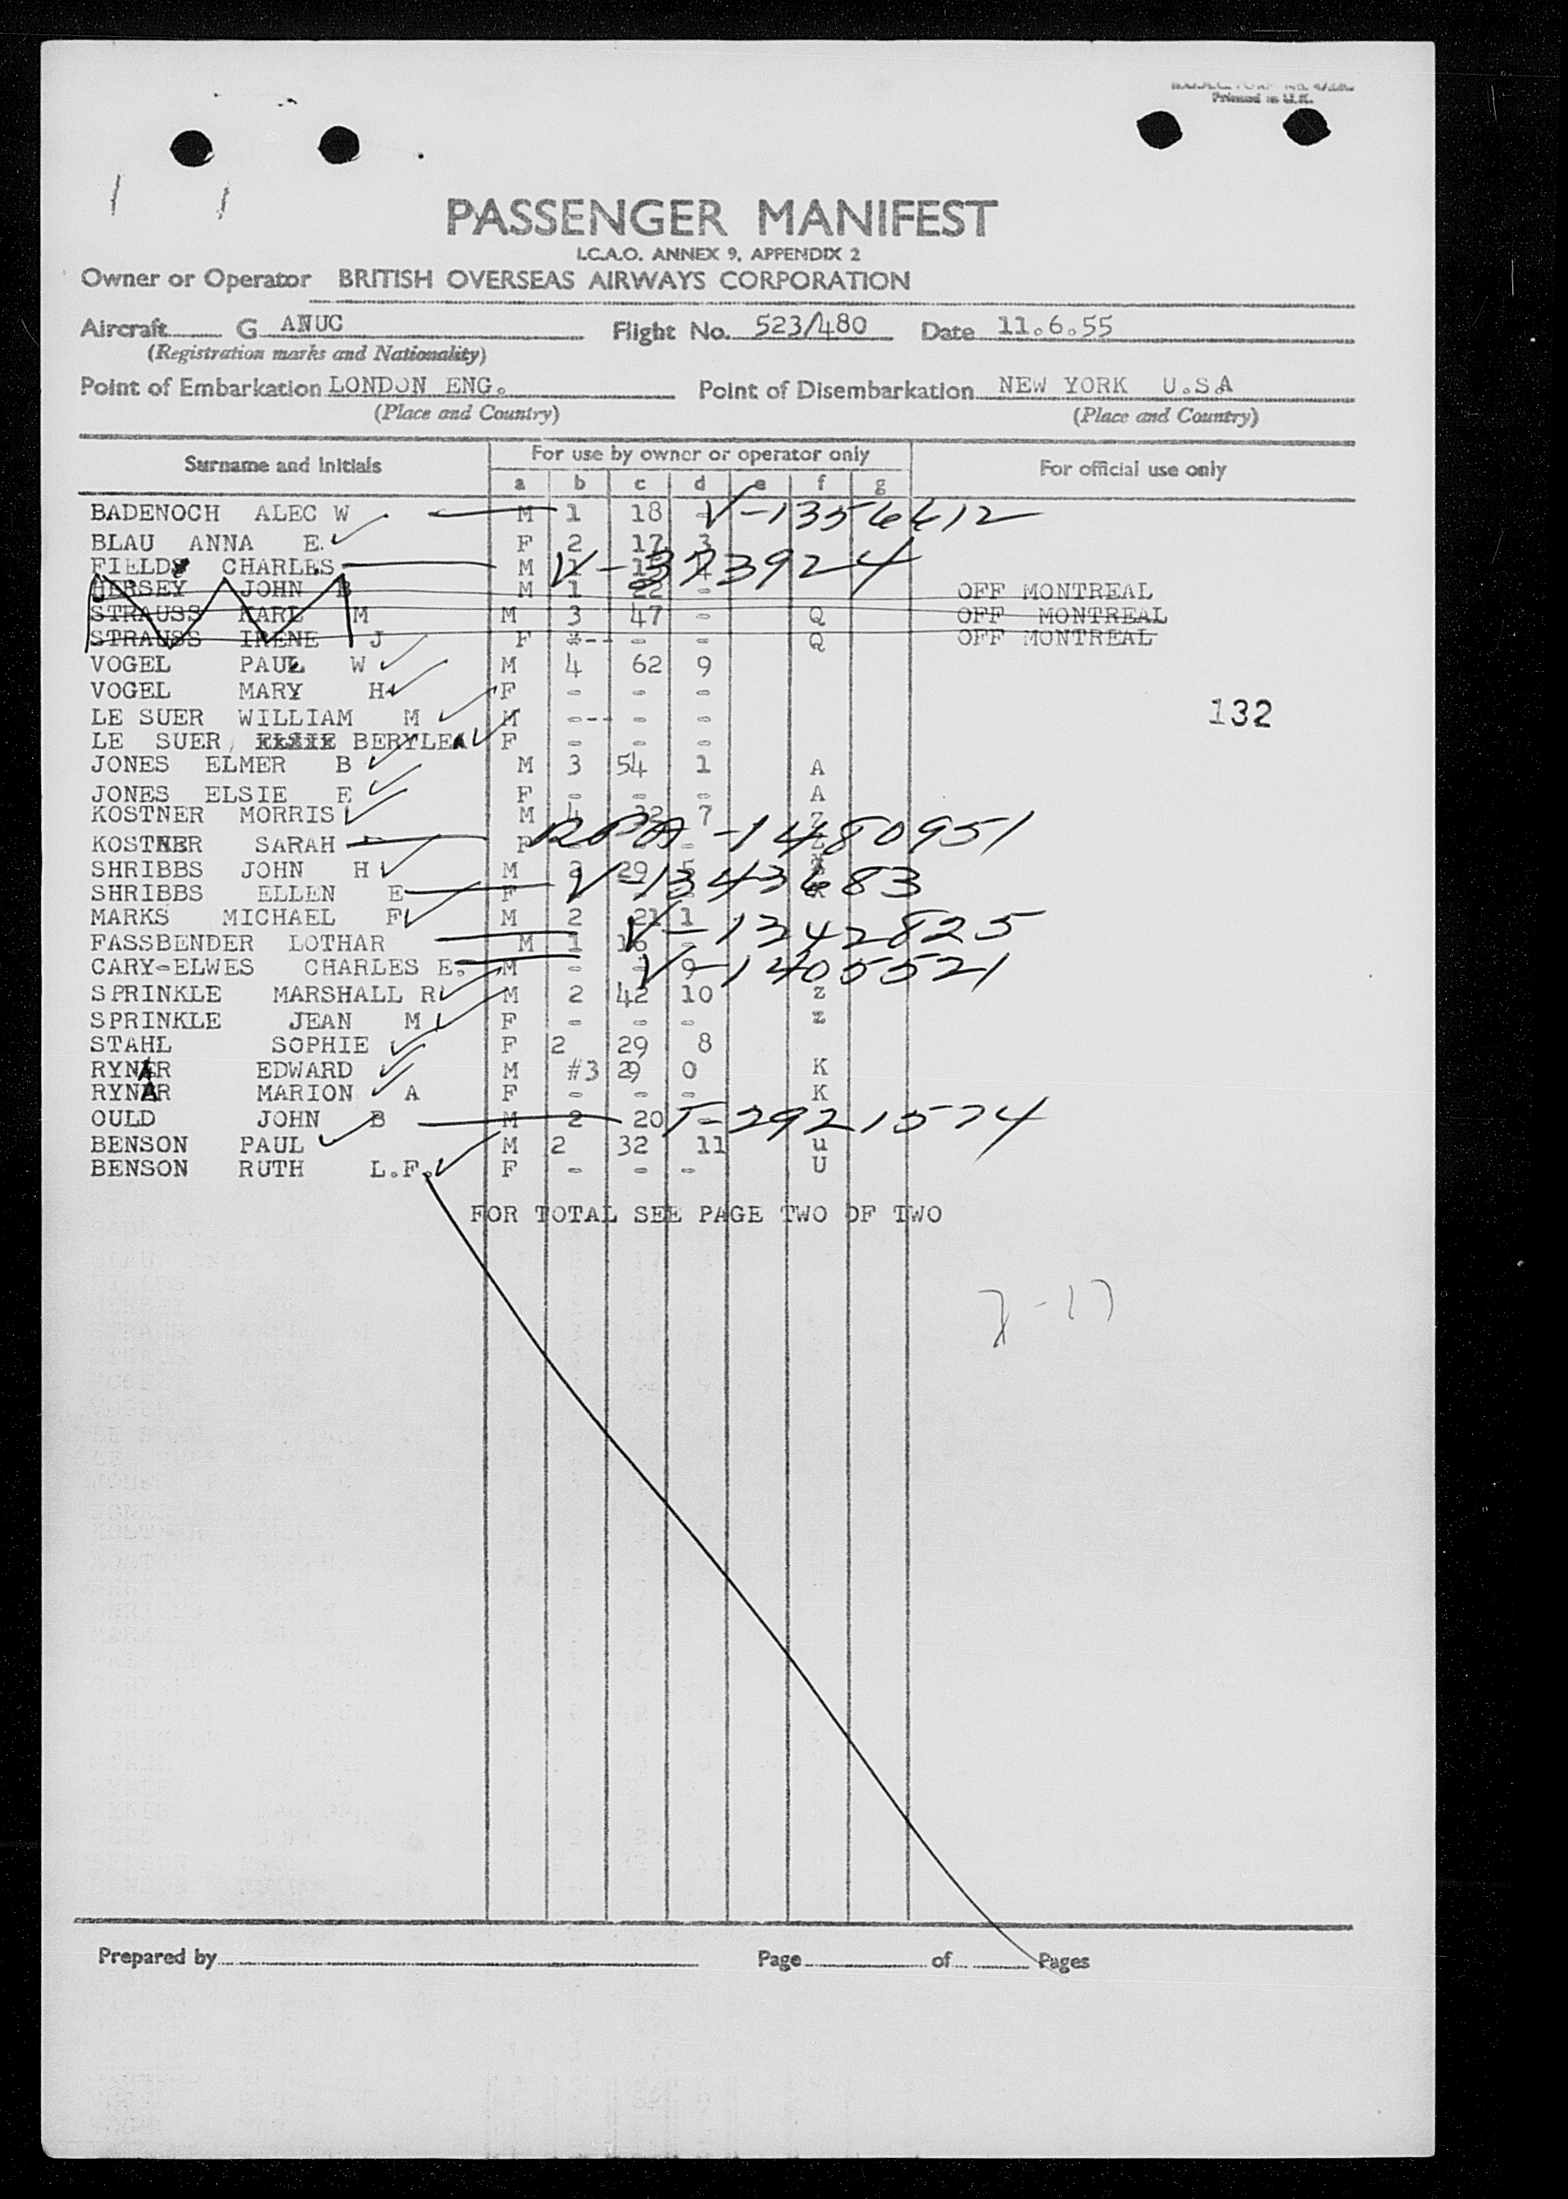 Printed in U.K.
PASSENGER MANIFEST
I.C.A.O. ANNEX 9, APPENDIX 2
Owner or Operator BRITISH OVERSEAS AIRWAYS CORPORATION
Aircraft G ANUC Flight No. 523/480 Date 11.6.55
(Registration marks and Nationality)
Point of Embarkation LONDON ENG. Point of Disembarkation NEW YORK U.S.A
(Place and Country) (Place and Country)
Surname and Initials For use by owner or operator only For official use only
a b c d e f g
BADENOCH ALEC W M 1 18 - V-1356612
BLAU ANNA E. F 2 17 3
FIELDS CHARLES M 1 V-373924
HERSEY JOHN B M 1 22 - OFF MONTREAL
STRAUSS KARL M M 3 47 - Q OFF MONTREAL
STRAUSS IRENE J F - - - Q OFF MONTREAL
VOGEL PAUL W M 4 62 9
VOGEL MARY H F - - -
LE SUER WILLIAM M M --- - - 132
LE SUER BERYLE A F - - -
JONES ELMER B M 3 54 1 A
JONES ELSIE E F - - - A
KOSTNER MORRIS M 4 32 7 Z
KOSTNER SARAH F - - - Z 1480951
SHRIBBS JOHN H M 2 29 5
SHRIBBS ELLEN E F V-1343683
MARKS MICHAEL F M 2 21 1
FASSBENDER LOTHAR M 1 16 - V-1342825
CARY-ELWES CHARLES E. M - - 9 V-1405521
SPRINKLE MARSHALL R M 2 42 10 Z
SPRINKLE JEAN M F - - - Z
STAHL SOPHIE F 2 29 8
RYNAR EDWARD M #3 29 0 K
RYNAR MARION A F - - - K
OULD JOHN B M 2 20 - T-2921574
BENSON PAUL M 2 32 11 u
BENSON RUTH L.F. F - - - U
FOR TOTAL SEE PAGE TWO OF TWO
7-17
Prepared by Page of Pages